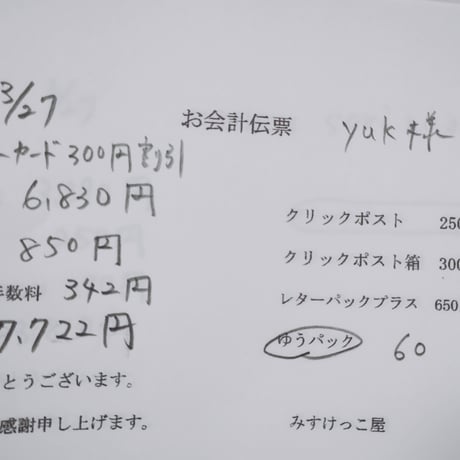 3/27
お会計伝票 yuk様
ーカード 300円割引
6,830円
クリックポスト 250
850円
クリックポスト箱 300
手数料 342円
レターパックプラス 650
7,722円
ゆうパック 60
とうございます。
感謝申し上げます。
みすけっこ屋